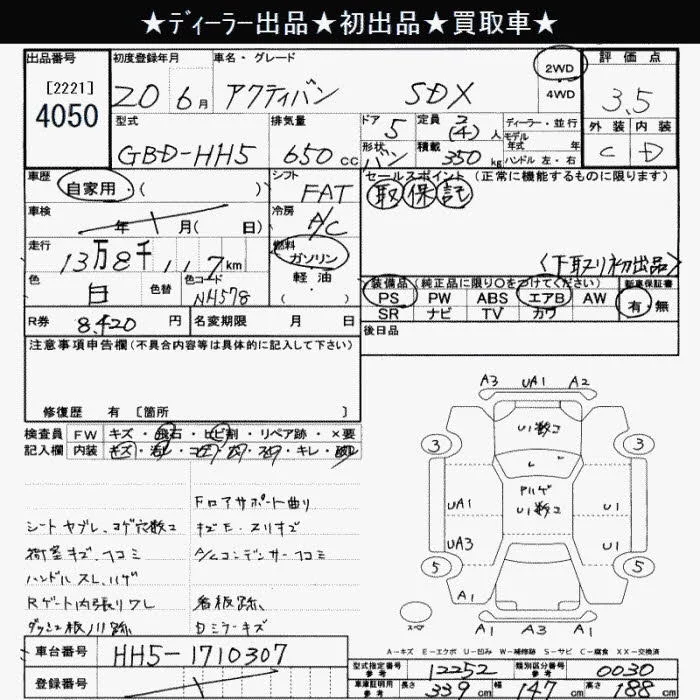 ★ディーラー出品★初出品★買取車★
出品番号 初度登録年月 車名・グレード 評価点
[2221] 4050
20 6月 アクティバン SDX 2WD 4WD 3.5
型式 排気量 ドア 5 定員 2(4)人 ディーラー・並行 外装 内装
GBD-HH5 650cc 形状 バン 積載 350kg モデル年式 年 ハンドル 左・右 C D
車歴 自家用・( ) シフト FAT セールスポイント (正常に機能するものに限ります)
取 保 記
車検 年 月( 日) 冷房 A/C
走行 13万8千117km 燃料 ガソリン 軽油・( )
<下取り初出品>
色 白 色替 色コード NH578
装備品 (純正品に限り○をつけてください) 新車保証書
PS PW ABS エアB AW 有 無
SR ナビ TV カワ
R券 8,420円 名変期限 月 日 後日品
注意事項申告欄(不具合内容等は具体的に記入して下さい)
修復歴 有 [箇所 ]
検査員 記入欄 FW キズ・飛石・ヒビ割・リペア跡・×要
内装 キズ・汚レ・コゲ・穴・スレ・キレ・
A3 UA1 A2
U1数コ
3 3
アハゲ
U1数コ
UA1 U1
UA3 U1
5 5
A1
A1 A3 A1
スペア
フロアサポート曲り
シートヤブレ、コゲ穴数コ キズE・スリキズ
荷室キズ、ヘコミ A/Cコンデンサーヘコミ
ハンドルスレ、ハゲ
Rゲート内張りワレ 看板跡、
ダッシュ板ノリ跡 Dミラーキズ
A-キズ E-エクボ U-凹み W-補修跡 S-サビ C-腐食 XX-交換済
車台番号 HH5-1710307
型式指定番号 参考 12252 類別区分番号 参考 0030
登録番号
車庫証明用 参考 長さ 339cm 幅 147cm 高さ 188cm